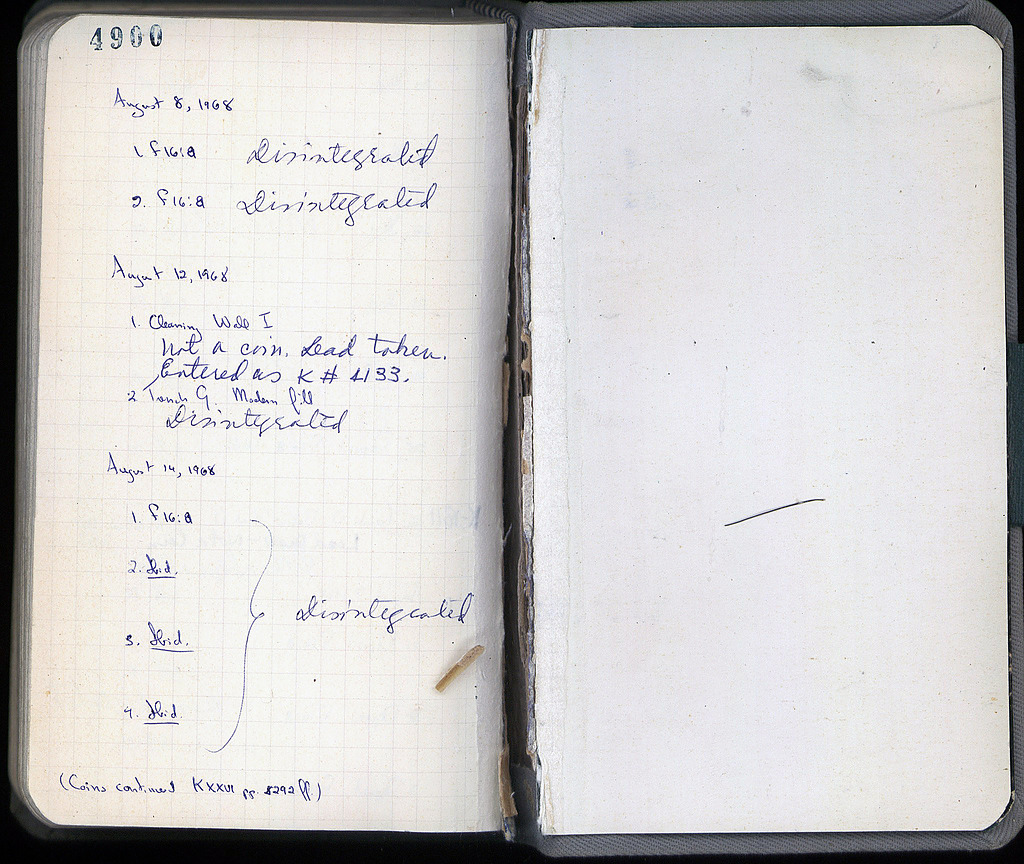 4900
August 8, 1968
1. F16:a Disintegrated
2. F16:a Disintegrated
August 12, 1968
1. Cleaning Wall I
Not a coin. Lead token.
Entered as K # 4133.
2 Trench G. Modern fill
Disintegrated
August 14, 1968
1. F16:a
2. Ibid.
3. Ibid. Disintegrated
4. Ibid.
(Coins continued KXXVI pp. 5292 ff.)